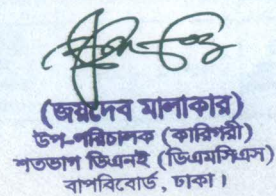 (জয়দেব মালাকার)
উপ-পরিচালক (কারিগরী)
শতভাগ ডিএনই (ডিএমসিএস)
বাপবিবোর্ড, ঢাকা।